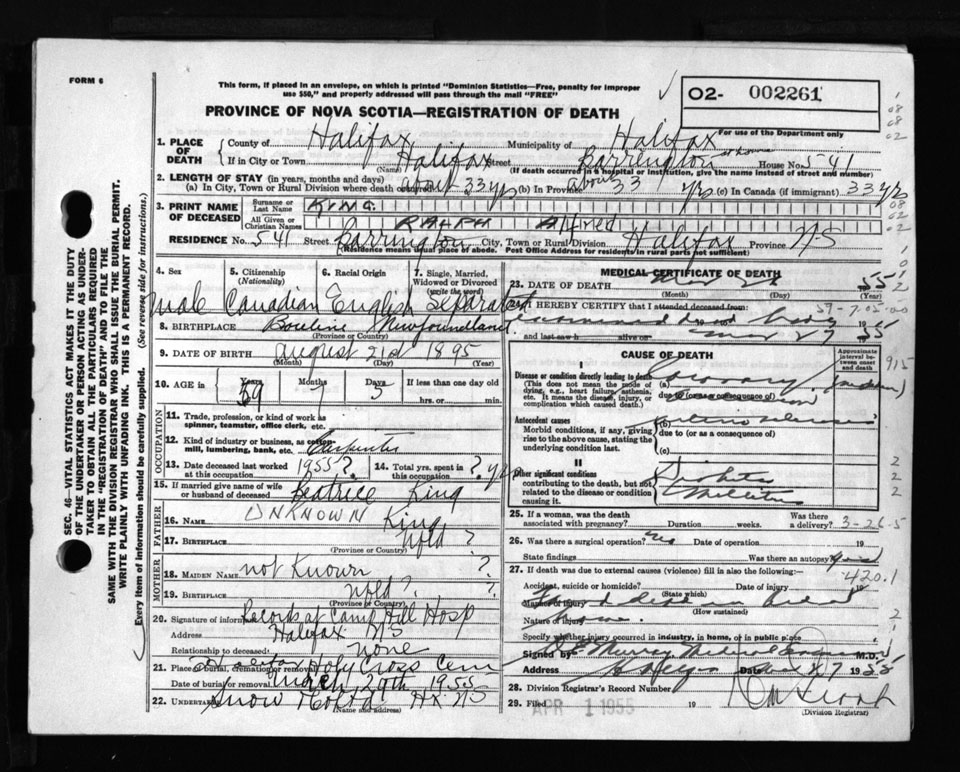 FORM 6
This form, if placed in an envelope, on which is printed "Dominion Statistics—Free, penalty for improper
use $50," and properly addressed will pass through the mail "FREE"
PROVINCE OF NOVA SCOTIA—REGISTRATION OF DEATH
O2- 002261
For use of the Department only
1. PLACE OF DEATH
County of Halifax Municipality of Halifax
If in City or Town Halifax Street Barrington at home House No. 541
(Name) (If death occurred in a hospital or institution, give the name instead of street and number)
2. LENGTH OF STAY (in years, months and days)
(a) In City, Town or Rural Division where death occurred about 33 yrs (b) In Province about 33 yrs (c) In Canada (if immigrant) 33 yrs
3. PRINT NAME OF DECEASED
Surname or Last Name KING
All Given or Christian Names RALPH Alfred
RESIDENCE No. 541 Street Barrington City, Town or Rural Division Halifax Province NS
(Residence means usual place of abode. Post Office Address for residents in rural parts not sufficient)
4. Sex 5. Citizenship (Nationality) 6. Racial Origin 7. Single, Married, Widowed or Divorced (write the word)
male Canadian English Separated
8. BIRTHPLACE Newfoundland
9. DATE OF BIRTH August 21st 1895
(Month) (Day) (Year)
10. AGE in Years Months Days If less than one day old
59 7 5 hrs. or min.
OCCUPATION
11. Trade, profession, or kind of work as
spinner, teamster, office clerk, etc.
12. Kind of industry or business, as cotton-
mill, lumbering, bank, etc. Carpenter
13. Date deceased last worked at this occupation 1955? 14. Total yrs. spent in this occupation ? yrs
15. If married give name of wife
or husband of deceased Beatrice King
FATHER
16. NAME UNKNOWN King
17. BIRTHPLACE Nfld ?
(Province or Country)
MOTHER
18. MAIDEN NAME not Known ?
19. BIRTHPLACE Nfld ?
(Province or Country)
20. Signature of informant Records at Camp Hill Hosp
Address Halifax NS
Relationship to deceased none
21. Place of burial, cremation or removal Halifax Holy Cross Cem
Date of burial or removal March 29th 1955
22. UNDERTAKER Snow Hx NS
(Name and address)
MEDICAL CERTIFICATE OF DEATH
23. DATE OF DEATH 1955
(Month) (Day)
I HEREBY CERTIFY that I attended deceased from:
59-7-05-00
and last saw h alive on Mar 27 1955
CAUSE OF DEATH
Approximate interval between onset and death
I
Disease or condition directly leading to death
(This does not mean the mode of dying, e.g., heart failure, asthenia, etc. It means the disease, injury, or complication which caused death.)
(a) Coronary
due to (or as a consequence of)
Antecedent causes
Morbid conditions, if any, giving rise to the above cause, stating the underlying condition last.
(b)
due to (or as a consequence of)
(c)
II
Other significant conditions
contributing to the death, but not related to the disease or condition causing it.
Diabetes
Mellitus
25. If a woman, was the death
associated with pregnancy? Duration weeks. Was there a delivery? 3-26-5
26. Was there a surgical operation? Date of operation
State findings Was there an autopsy?
27. If death was due to external causes (violence) fill in also the following:—
420.1
Accident, suicide or homicide? Date of injury 19
(State which)
Manner of injury
(How sustained)
Nature of injury
Specify whether injury occurred in industry, in home, or in public place
Signed by Murray M.D.
Address Date 27 1955
28. Division Registrar's Record Number
29. Filed APR 1 1955 19
(Division Registrar)
SEC. 46—VITAL STATISTICS ACT MAKES IT THE DUTY
OF THE UNDERTAKER OR PERSON ACTING AS UNDER-
TAKER TO OBTAIN ALL THE PARTICULARS REQUIRED
IN THE "REGISTRATION OF DEATH" AND TO FILE THE
SAME WITH THE DIVISION REGISTRAR WHO SHALL ISSUE THE BURIAL PERMIT.
WRITE PLAINLY WITH UNFADING INK. THIS IS A PERMANENT RECORD.
Every item of information should be carefully supplied. (See reverse side for instructions.)